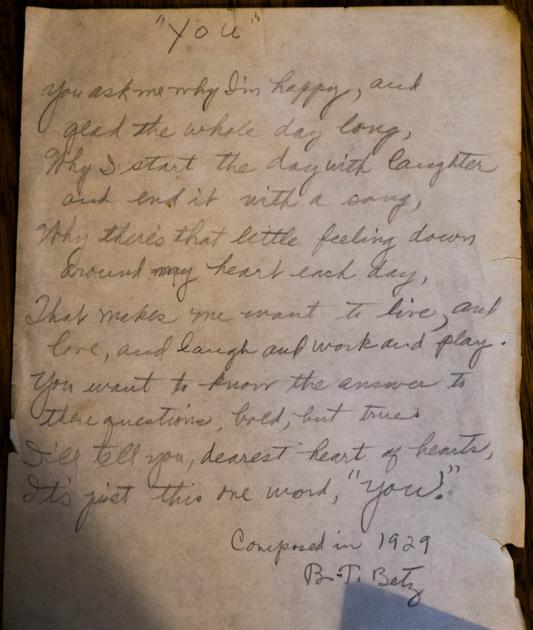 "YOU"
You ask me why I'm happy, and
glad the whole day long,
Why I start the day with laughter
and end it with a song,
Why there's that little feeling down
around my heart each day,
That makes me want to live, and
love, and laugh and work and play.
You want to know the answer to
these questions, bold, but true
I'll tell you, dearest heart of hearts,
It's just this one word, "You."
Composed in 1929
B.T. Betz